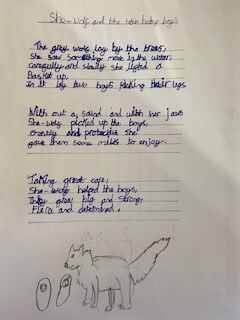 She-wolf and the twin baby boys
The grey wolf lay by the trees,
She saw something move in the water,
Carefully and slowly she lifted a
Basket up,
In it lay two boys kicking their legs
With out a sound and with her jaws
She-wolf picked up the boys,
and protective she
gave them some milk to enjoy.
Taking great care,
She-wolf helped the boys,
They grow big and strong,
Fierce and determined.